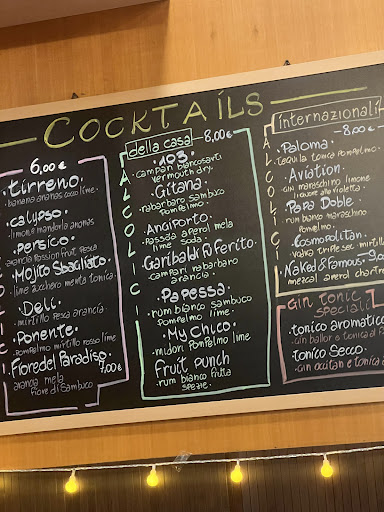 COCKTAILS
6,00€
tirreno.
banana ananas cocco lime.
calypso.
limone mandorla ananas
Persico.
arancia Passion fruit Pesca
Mojito Sbagliato
lime zucchero menta tonica.
Deli.
mirtillo Pesca arancia.
Ponente.
Pompelmo mirtillo rosso lime
Fiore del Paradiso.
7,00€
arancia mela
fiore di Sambuco
della casa
8,00€
ALCOLICI
.103.
.campari biancosarti
vermouth dry.
Gitana.
.rabarbaro sambuco
Pompelmo.
Angiporto.
.Passoa aperol mela
lime soda.
Garibaldi fu ferito.
.campari rabarbaro
arancia.
Papessa.
.rum bianco sambuco
Pompelmo lime.
My Chico.
.midori Pompelmo lime
fruit punch
.rum bianco frutta
spezie.
internazionali
-8,00€-
ALCOLICI
Paloma.
tequila tonica Pompelmo.
Aviation.
.gin maraschino limone
liquore alla violetta.
Papa Doble.
rum bianco maraschino
Pompelmo.
Cosmopolitan.
vodka triple sec mirtillo
Naked & Famous.
mezcal aperol chartr
Gin tonic
speciali
.tonico aromatico
.gin ballor e tonica al
.tonico secco.
.Gin occitan e tonica